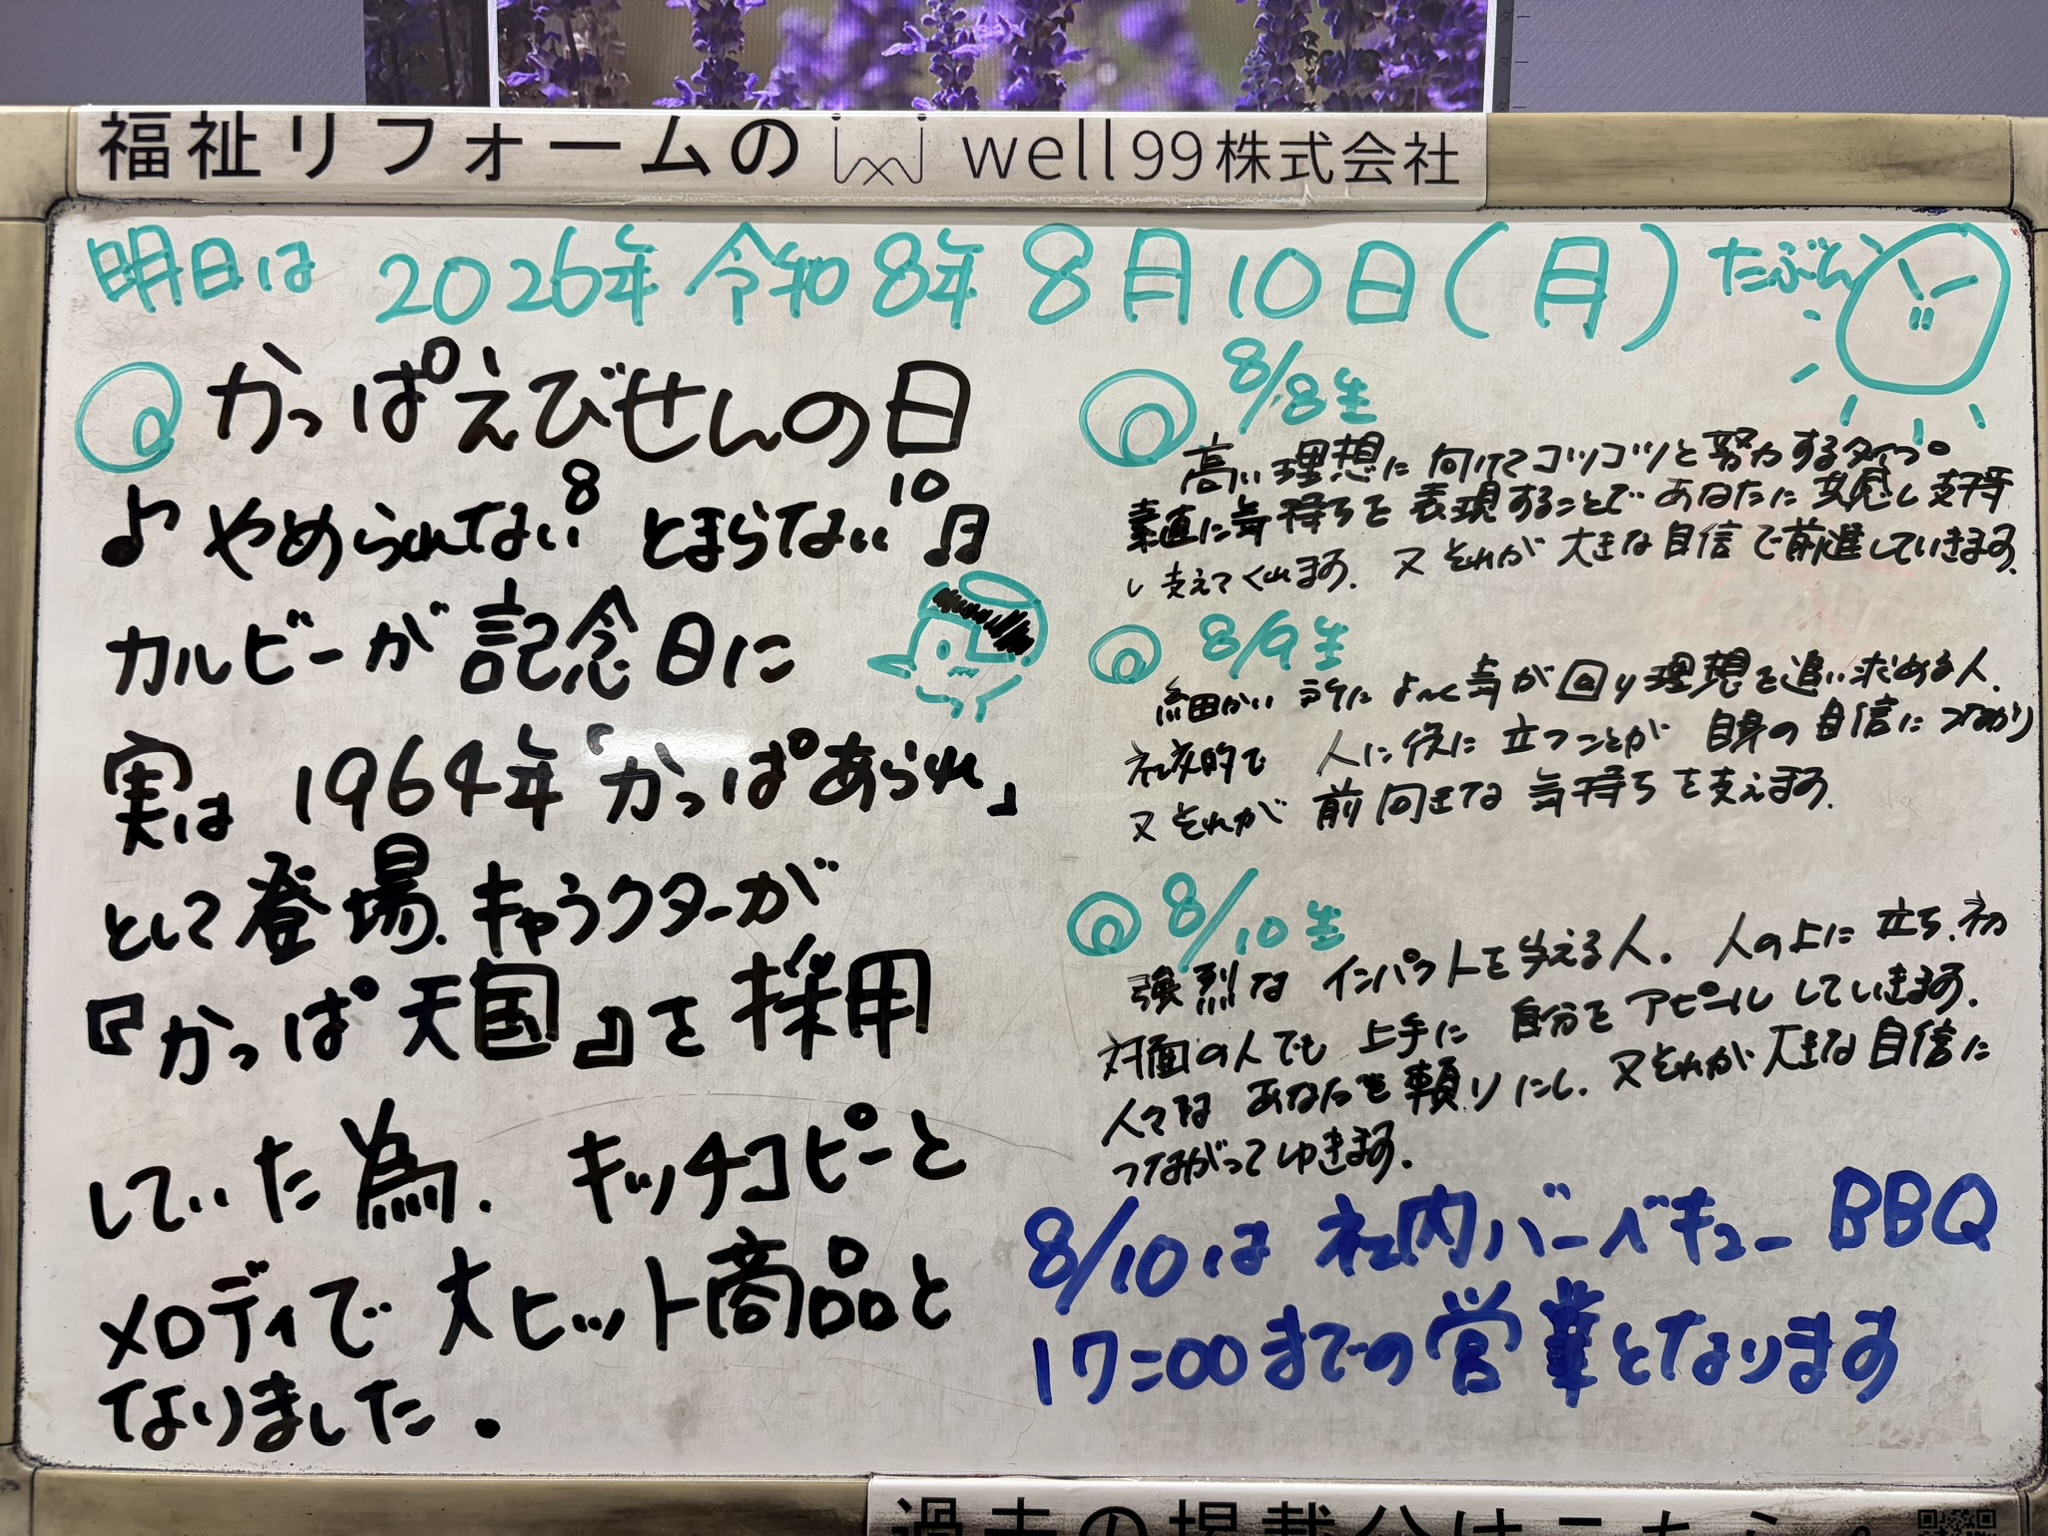 福祉リフォームの well99株式会社
明日は 2026年 令和8年 8月10日(月) たぶん
かっぱえびせんの日
♪やめられない とまらない♫
8 10
カルビーが記念日に
実は 1964年「かっぱあられ」
として登場.キャラクターが
『かっぱ天国』を採用
していた為. キャッチコピーと
メロディで 大ヒット商品と
なりました.
8/8生
高い理想に向けてコツコツと努力するタイプ。
素直に気持ちを表現することであなたに共感し支持
し支えてくれます. 又それが大きな自信で前進していきます.
8/9生
細かい所によく気が回り理想を追い求める人.
社交的で 人に役に立つことが 自身の自信につながり
又それが 前向きな気持ちを支えます.
8/10生
強烈なインパクトを与える人. 人の上に立ち、初
対面の人でも 上手に 自分をアピールしていきます.
人々は あなたを頼りにし. 又それが大きな自信に
つながってゆきます.
8/10は 社内バーベキュー BBQ
17:00までの営業となります
過去の掲載分はこちら